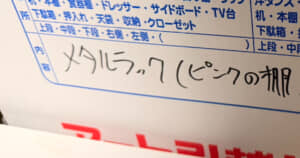 机・本棚・食器棚・ドレッサー・サイドボード・TV台
下駄箱・押入れ・天袋・収納・クローゼット
上段・中段・下段・右側・左側・(
机・本棚・
下駄箱・押
上段・中段
内容
メタルラック(ピンクの棚
アート引越